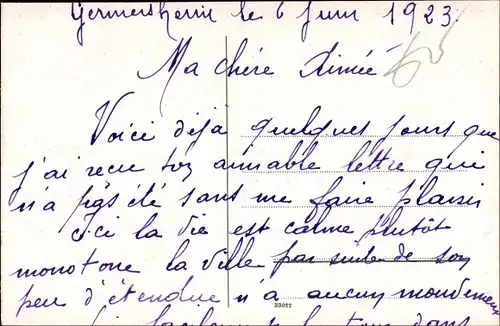 Germersheim le 6 Juin 1923.
Ma chère Aimée
Voici déjà quelques jours que
j'ai reçu ton aimable lettre qui
n'a pas été sans me faire plaisir
Ici la vie est calme plutôt
monotone la ville par suite de son
peu d'étendue n'a aucun mouvement
33022